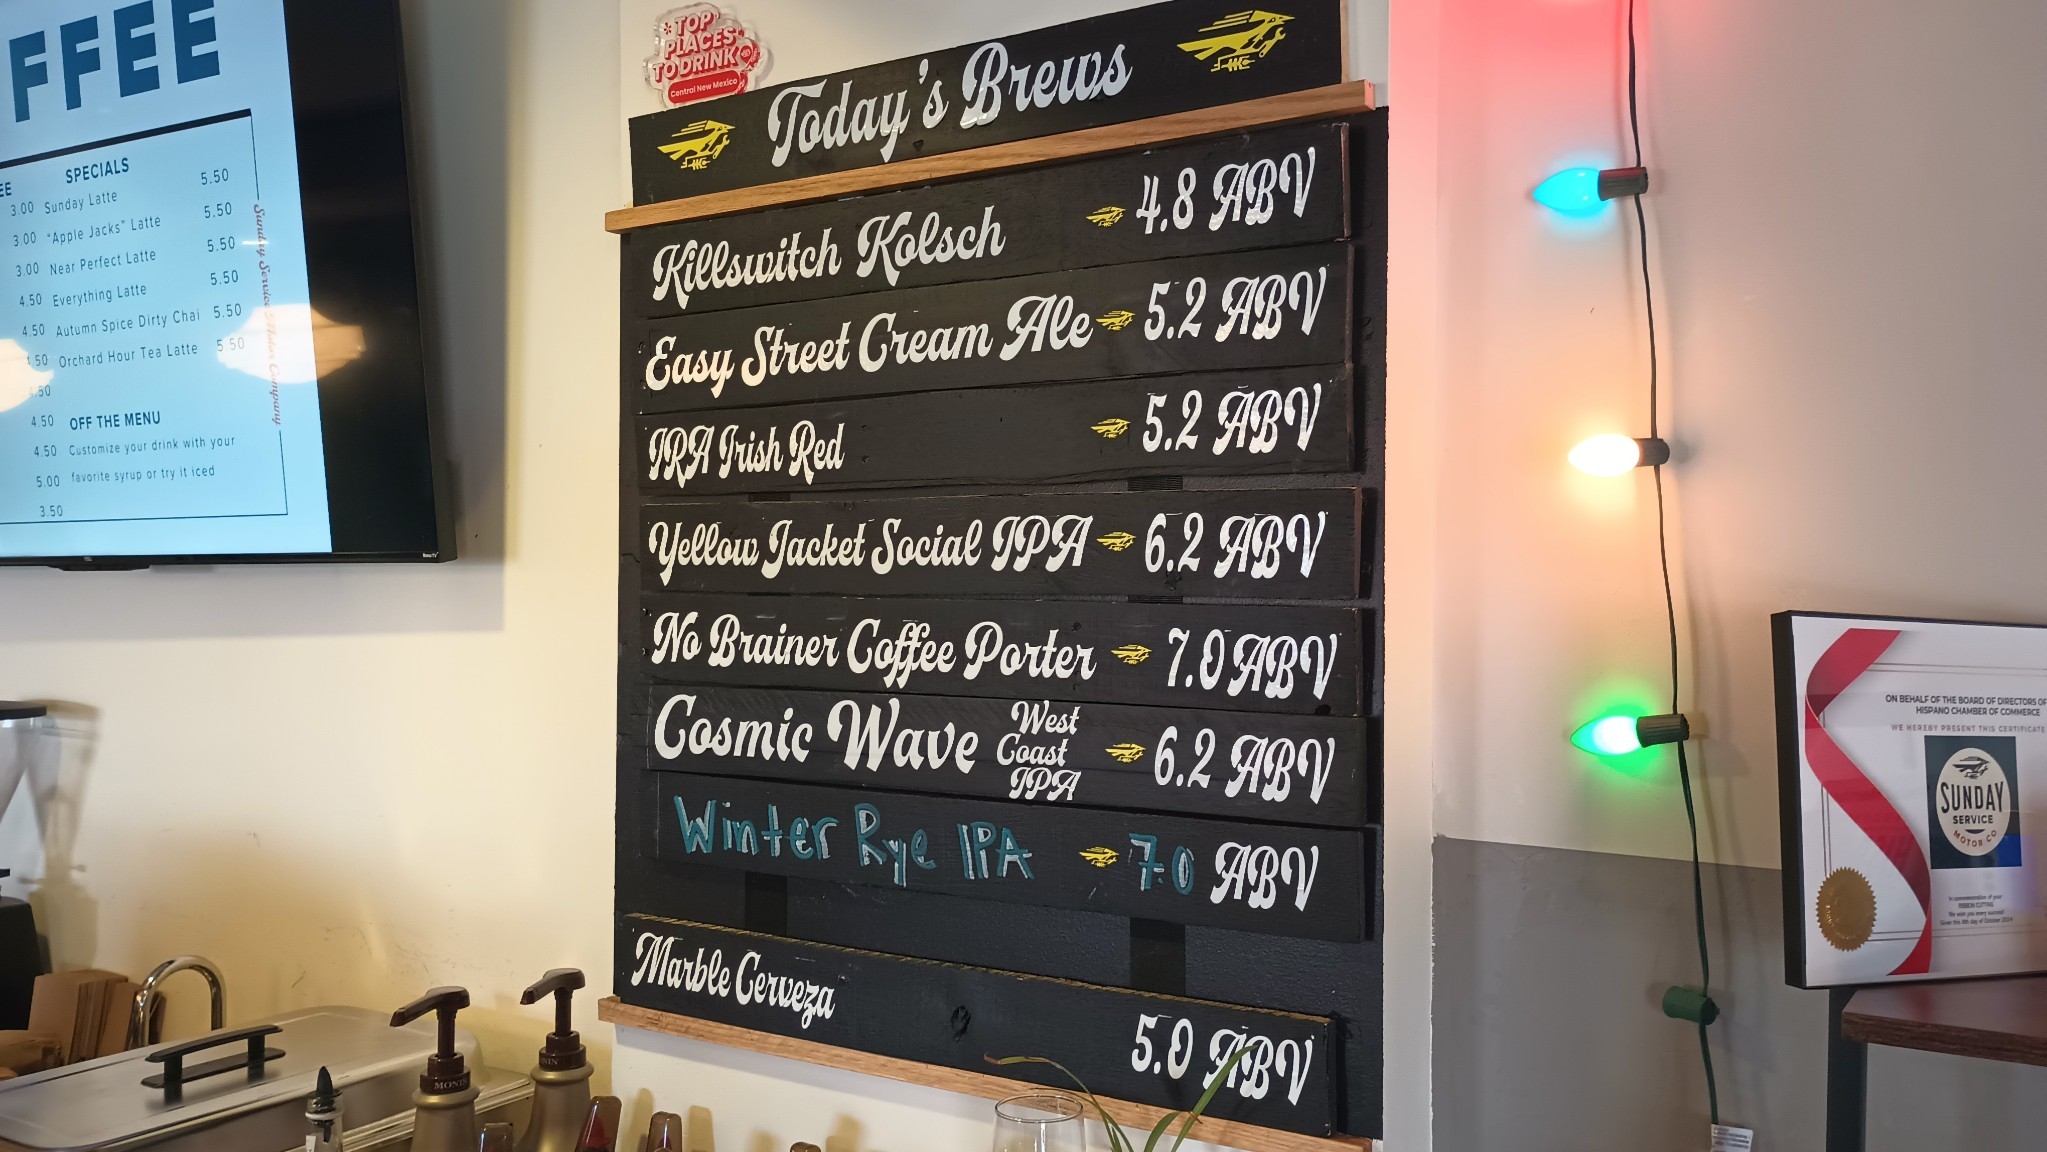 FFEE
EE
SPECIALS
3.00 Sunday Latte 5.50
3.00 "Apple Jacks" Latte 5.50
3.00 Near Perfect Latte 5.50
4.50 Everything Latte 5.50
4.50 Autumn Spice Dirty Chai 5.50
4.50 Orchard Hour Tea Latte 5.50
4.50
4.50 OFF THE MENU
4.50 Customize your drink with your
5.00 favorite syrup or try it iced
3.50
Sunday Service Motor Company
Roku TV
TOP
PLACES
TO DRINK
Central New Mexico
Today's Brews
Killswitch Kolsch 4.8 ABV
Easy Street Cream Ale 5.2 ABV
IRA Irish Red 5.2 ABV
Yellow Jacket Social IPA 6.2 ABV
No Brainer Coffee Porter 7.0 ABV
Cosmic Wave West Coast IPA 6.2 ABV
Winter Rye IPA 7.0 ABV
Marble Cerveza 5.0 ABV
MONIN
ON BEHALF OF THE BOARD OF DIRECTORS OF
HISPANO CHAMBER OF COMMERCE
WE HEREBY PRESENT THIS CERTIFICATE
SUNDAY
SERVICE
MOTOR CO
In commemoration of your
RIBBON CUTTING
We wish you every success!